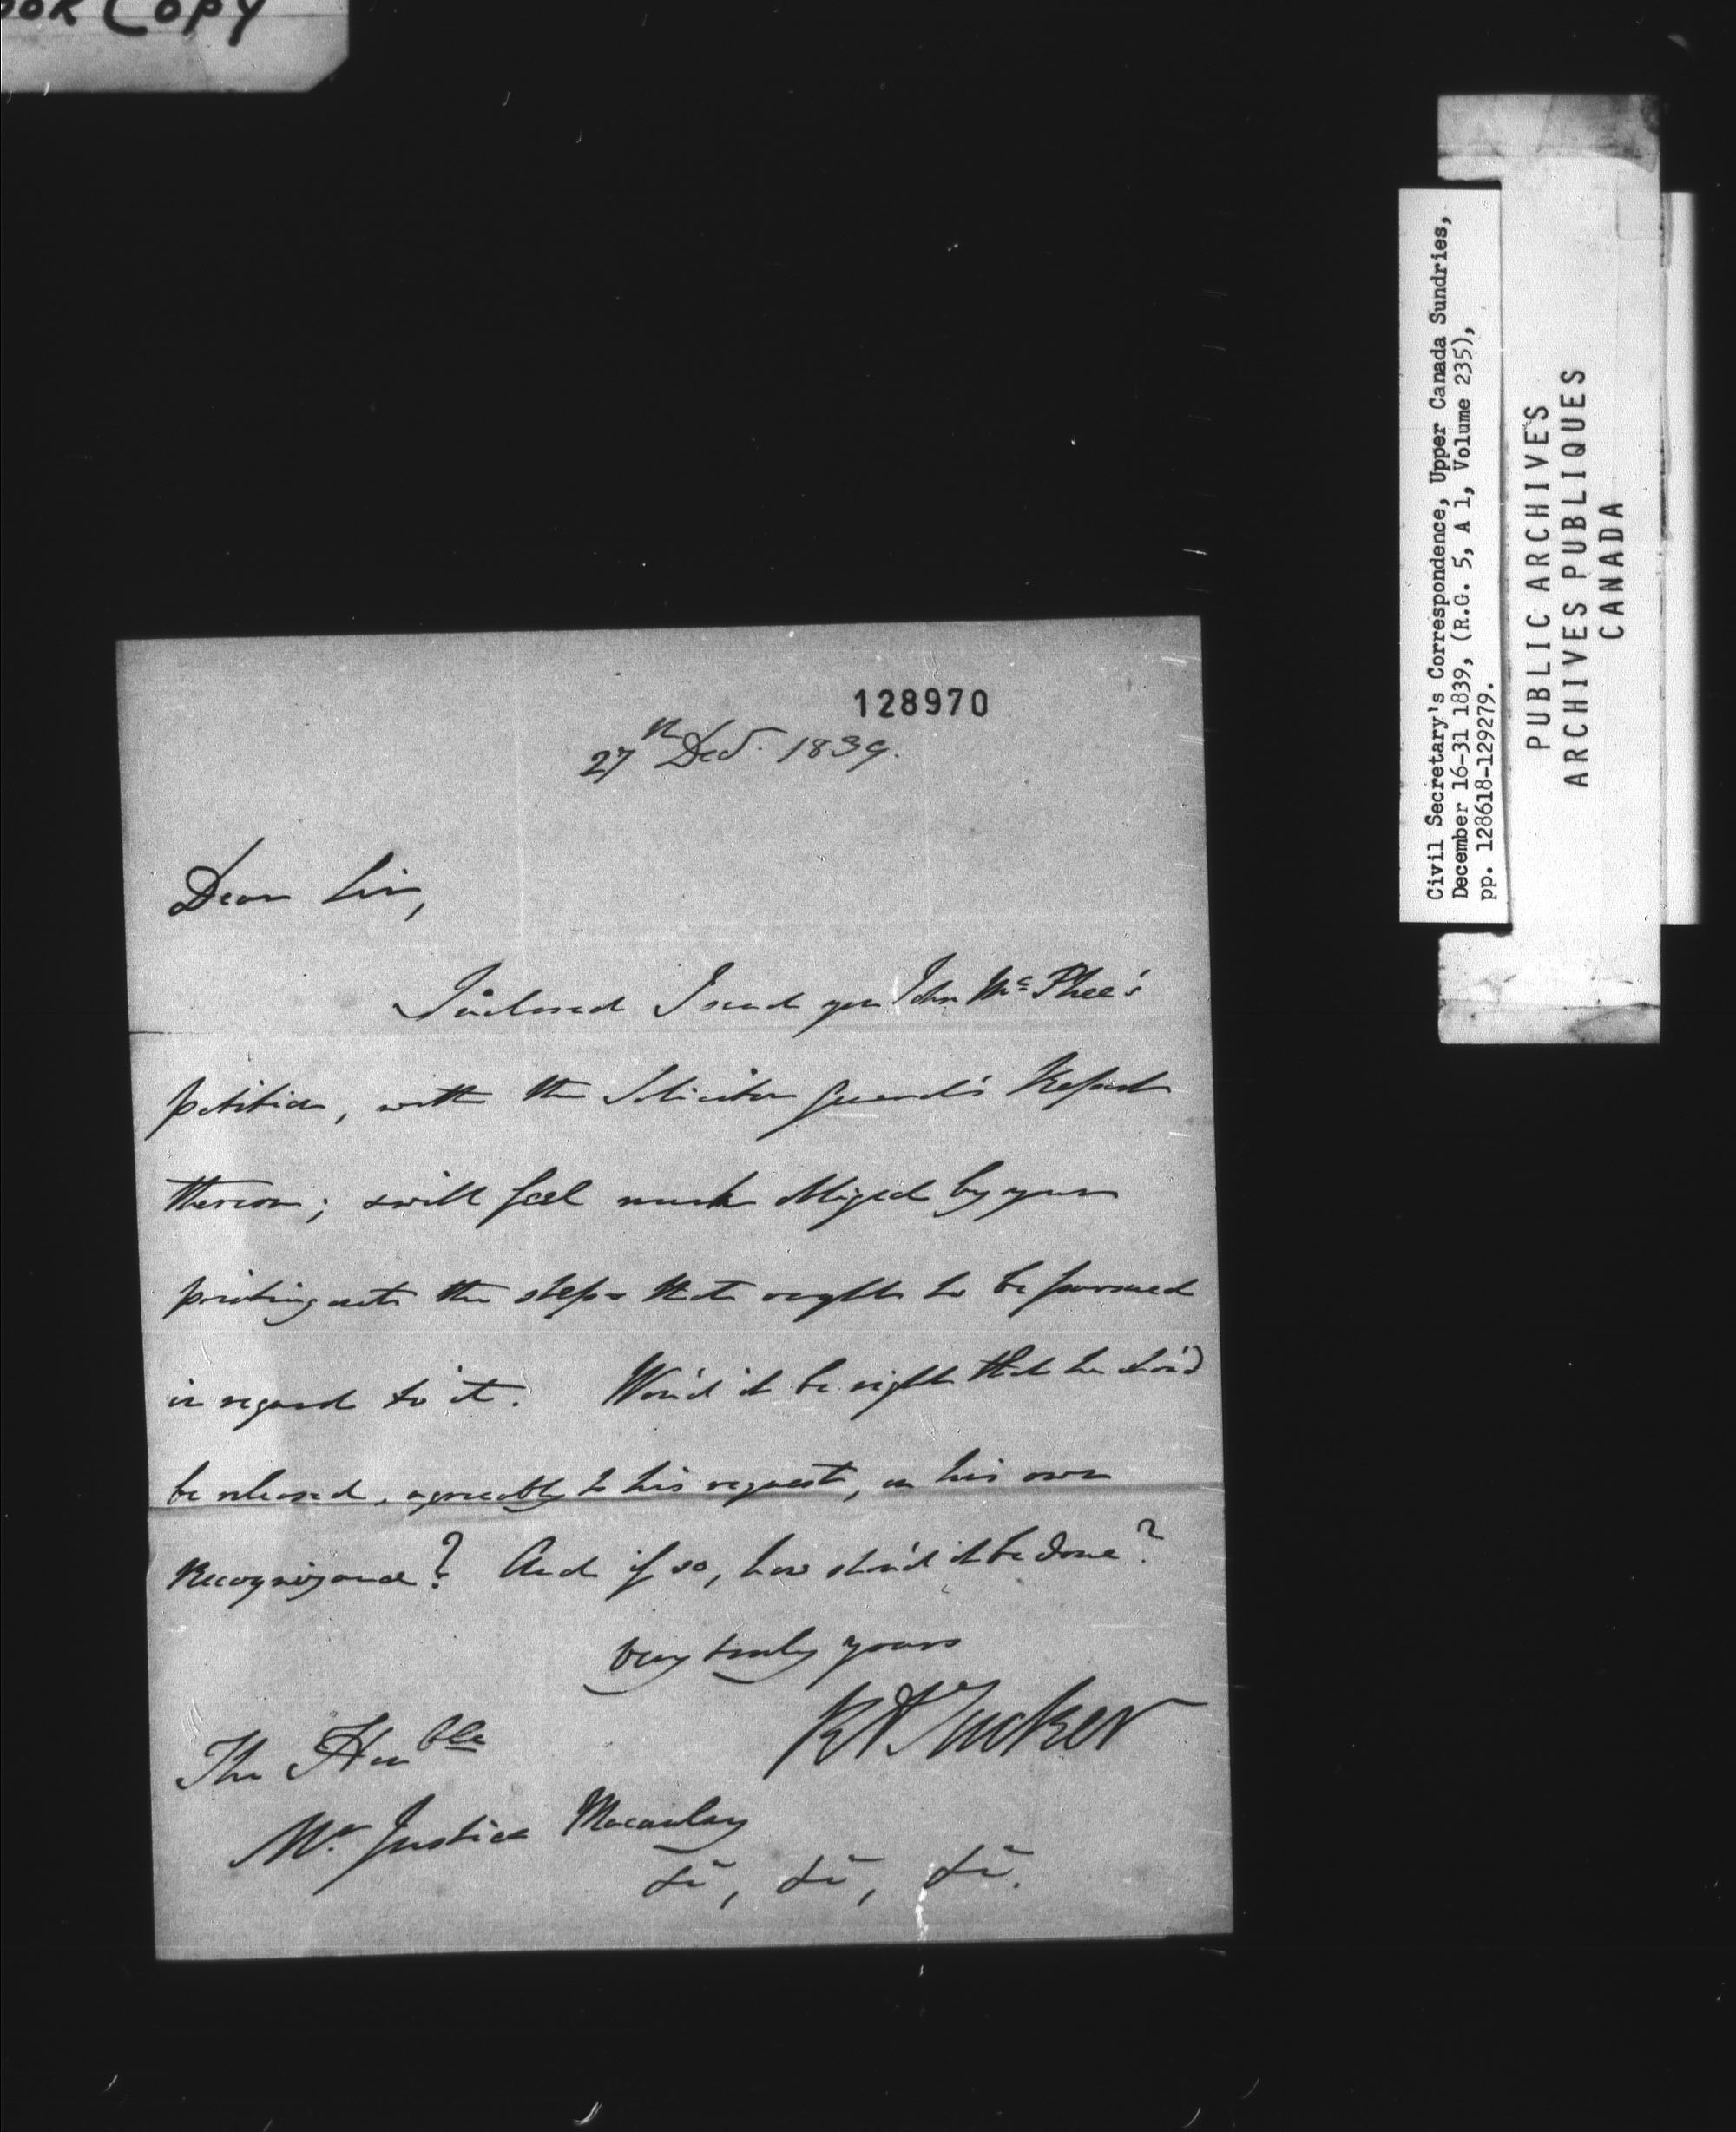 ook Copy
128970
27th Decr. 1839.
Dear Sir,
Inclosed I send you John McPhee's
petition, with the Solicitor General's Report
thereon; & will feel much obliged by your
pointing out the steps that ought to be pursued
in regard to it. Wou'd it be right that he shou'd
be released, agreeably to his request, on his own
Recognizance? And if so, how shou'd it be done?
Very truly yours
R A Tucker
The Honble
Mr. Justice Macaulay
&c, &c, &c.
Civil Secretary's Correspondence, Upper Canada Sundries,
December 16-31 1839, (R.G. 5, A 1, Volume 235),
pp. 128618-129279.
PUBLIC ARCHIVES
ARCHIVES PUBLIQUES
CANADA